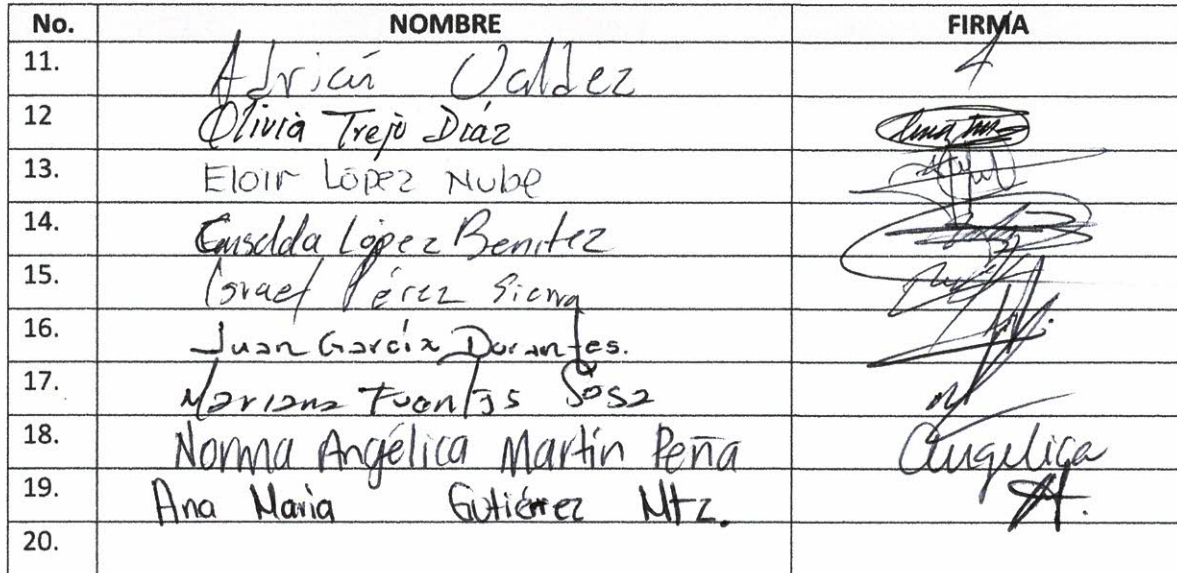 No. NOMBRE FIRMA
11. Adrián Valdez
12 Olivia Trejo Díaz
13. Eloir López Nube
14. Griselda López Benítez
15. Israel Pérez Sierra
16. Juan García Dorantes.
17. Mariana Fuentes Sosa
18. Norma Angélica Martín Peña Angelica
19. Ana Maria Gutiérrez Mtz.
20.